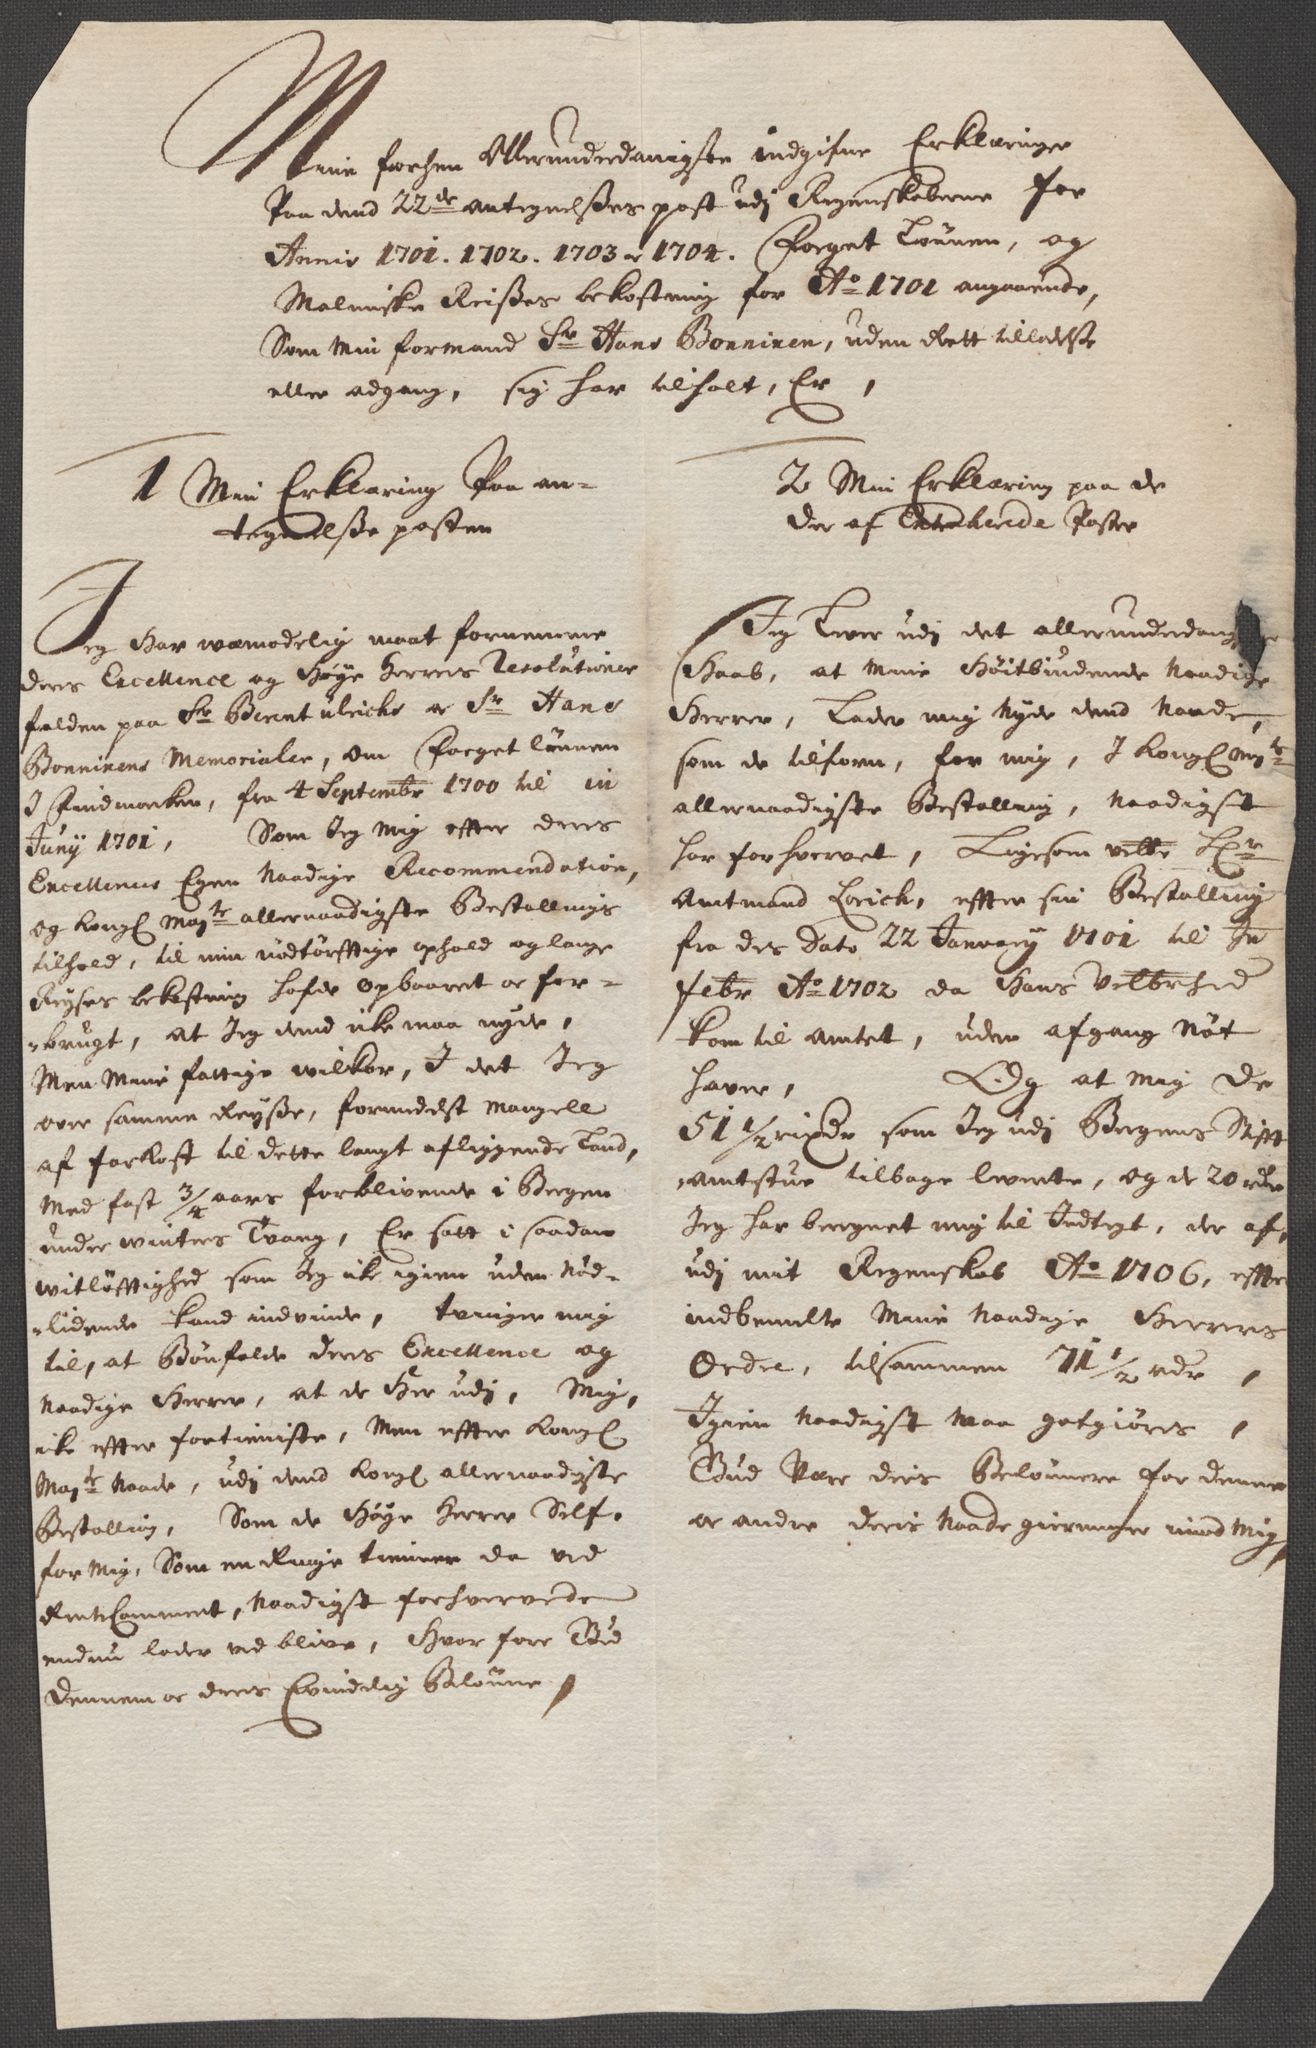 Mine forhen Allerunderdanigste indgifne Erklæringer
Paa dend 22de antegnelsses post udj Regenskaberne for
Annis 1701. 1702. 1703 & 1704. Foeget Lønnen, og
Malmiske Reisses bekostning for Ao 1701 angaaende,
Som Min formand Sr Hans Bonninen, uden Rett tilladelse
eller adgang, sig har tilholt, Er,
1 Min Erklæring Paa an-
tegnelsse posten
Jeg Har wemodelig maat fornemme
deris Excellence og Høye Herrers Resolutioner
falden paa Sr Berent Ulrichs & Sr Hans
Bonninens Memorialer, om Foeget lønnen
I Findmarken, fra 4 Septembr 1700 til in
Juny 1701, Som Jeg Mig effter deris
Excellences Egen Naadige Recommendation,
og Kongl Mayts allernaadigste Bestallings
tilhold, til min nødtørfftige ophold og lange
Reyses bekostning hafde opbaaret & for-
brugt, at Jeg dend icke maa nyde,
Men Mine fattige wilkor, I det Jeg
over samme Reysse, formedelst Mangell
af forkost til dette langt afliggende Land,
Med fast 3/4 aars forblivende i Bergen
under winters Tvang, Er satt i saadan
witløfftighed som Jeg icke igien uden Nød-
lidende kand indvinde, tvinger mig
til, at Bønfalde deris Excellence og
Naadige Herrer, at de Her udj, Mig,
icke effter fortieniste, Men effter Kongl
Mayts Naade, udj dend Kongl allernaadigste
Bestalling, Som de Høye Herrer Self,
for Mig, Som en Ringe tienner da ved
RenteCammeret, Naadigst forhvervede
endnu lader ved blive, Hvor fore Gud
dennem & deris Evindelig Beløнne,
2 Min Erklæring paa de
der af Dependerende Poster
Jeg Lever udj det allerunderdanigste
Haab, at Mine Høitbiudende Naadige
Herrer, Lader mig Nyde dend Naade,
som de tilforn, for mig, I Kongl Mayts
allernaadigste Bestalling, Naadigst
har forhvervet, Ligesom velbr Hr
Amtmand Lorich, effter sin Bestalling
fra des Dato 22 January 1701 til In
Febr Ao 1702 da Hans Velbrhed
kom til amtet, uden afgang Nøt
haver, Og at mig de
51 1/2 rixdr som Jeg udj Bergens Stift
amtstue tilbage leverte, og de 20 rdr
Jeg har beregnet mig til Indtegt, der af,
udj mit Regenskab Ao 1706, effter
indbemelte Mine Naadige Herrers
Ordre, tilsammen 71 1/2 rdr,
Igien Naadigst maa gotgiøres,
Gud Være deris Belønnere for denne
& andre deris Naade gierninger imod Mig,